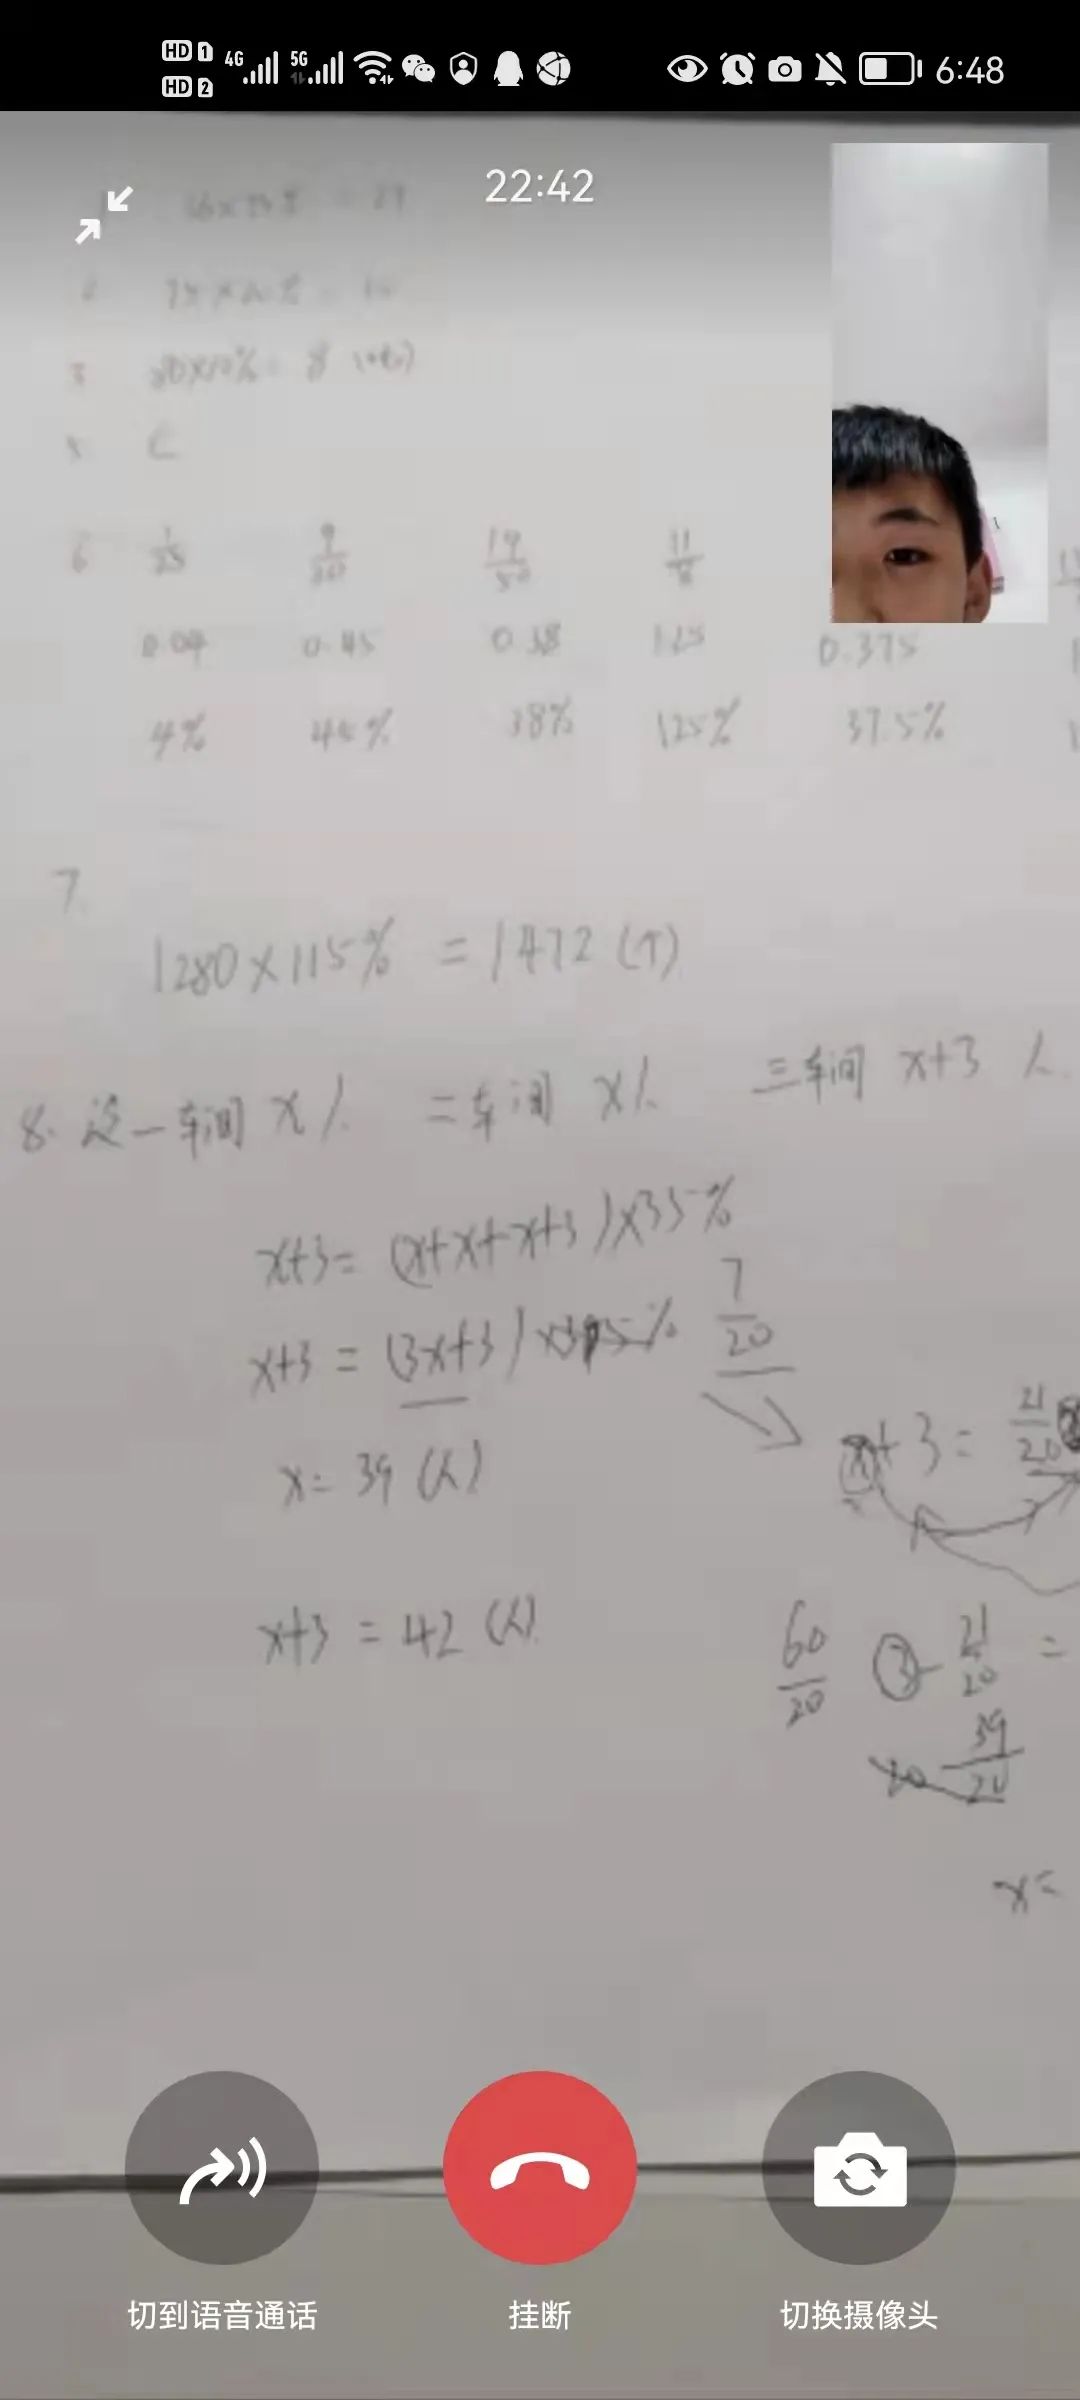 HD 1 4G 5G 6:48
HD 2
22:42
80×10% = 8
C
6 1/25 9/20 19/50 11
0.04 0.45 0.38 1.25 0.375
4% 45% 38% 125% 37.5%
7.
1280×115% = 1472(个)
8. 设一车间 x人 二车间 x人 三车间 x+3 人
x+3= (x+x+x+3)×35%
x+3 = (3x+3) 7/20
x+3 = 21/20
x= 39 (人)
x+3 = 42 (人)
60/20 3- 21/20 =
39/20
x=
切到语音通话 挂断 切换摄像头